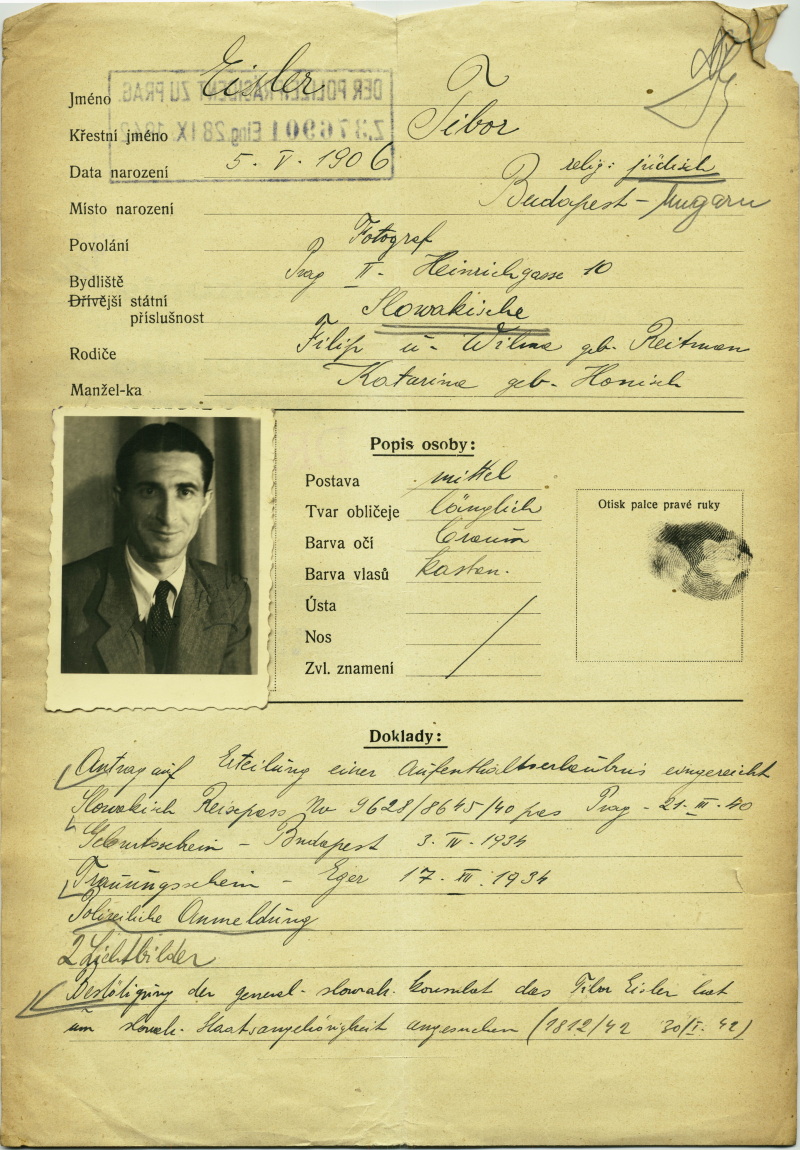 Jméno Eisler
Křestní jméno Tibor
Data narození 5. V. 1906
relig: jüdisch
Místo narození Budapest - Ungarn
Povolání Fotograf
Bydliště Prag II - Heinrichgasse 10
Dřívější státní
příslušnost Slowakische
Rodiče Filip u. Wilma geb. Reitman
Manžel-ka Katarina geb. Honisch
DER POLIZEIPRÄSIDENT ZU PRAG
Z376901 Eing 28 IX.
Popis osoby:
Postava mittel
Tvar obličeje länglich
Barva očí braun
Barva vlasů kastan.
Ústa
Nos
Zvl. znamení
Otisk palce pravé ruky
Doklady:
Antrag auf Erteilung einer Aufenthaltserlaubnis eingereicht
Slowakisch Reisepass No 9628/8645/40 pas Prag - 21. III. 40
Geburtsschein - Budapest 3. IV. 1934
Trauungsschein - Eger 17. XII. 1934
Polizeiliche Anmeldung
2 Lichtbilder
Bestätigung der general. slowak. konsulat das Tibor Eisler hat
um slowak. Staatsangehörigkeit angesuchen (1812/42 30/I. 42)